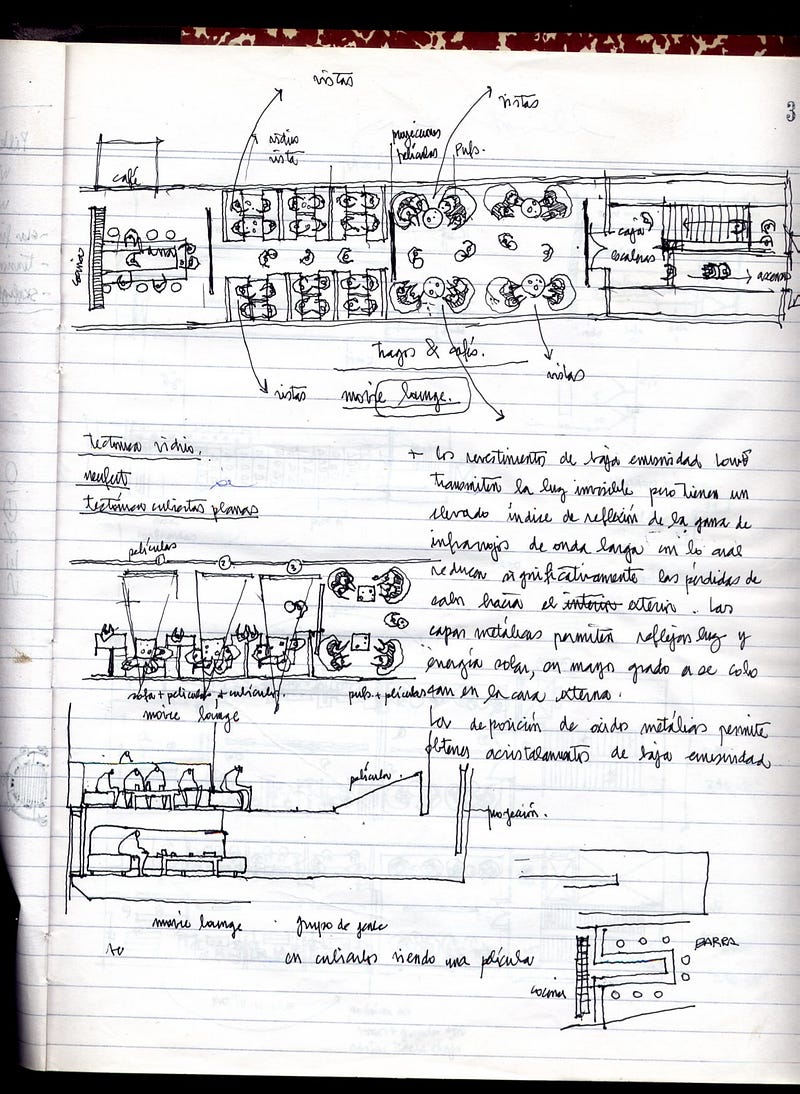 vistas
vistas
vidrio
vista
proyecciones
películas
Pub.
café
barra
caja
escaleras
acceso
tragos & cafés.
vistas
vistas
movie lounge.
tectónica vidrio.
neufert
tectónica cubiertas planas
+ los revestimientos de baja emisividad LowE
transmiten la luz invisible pero tienen un
elevado índice de reflexión de la gama de
infrarrojos de onda larga con lo cual
reducen significativamente las pérdidas de
calor hacia el interior exterior. Las
capas metálicas permiten reflejar luz y
energía solar, en mayor grado a se colo
can en la cara externa.
La deposición de óxidos metálicos permite
obtener acristalamientos de baja emisividad
películas
1
2
3
sofa + película + cubículo.
pub. + películas
movie lounge
película
proyección.
movie lounge · grupo de gente
en cubículos viendo una película
BARRA
cocina
3